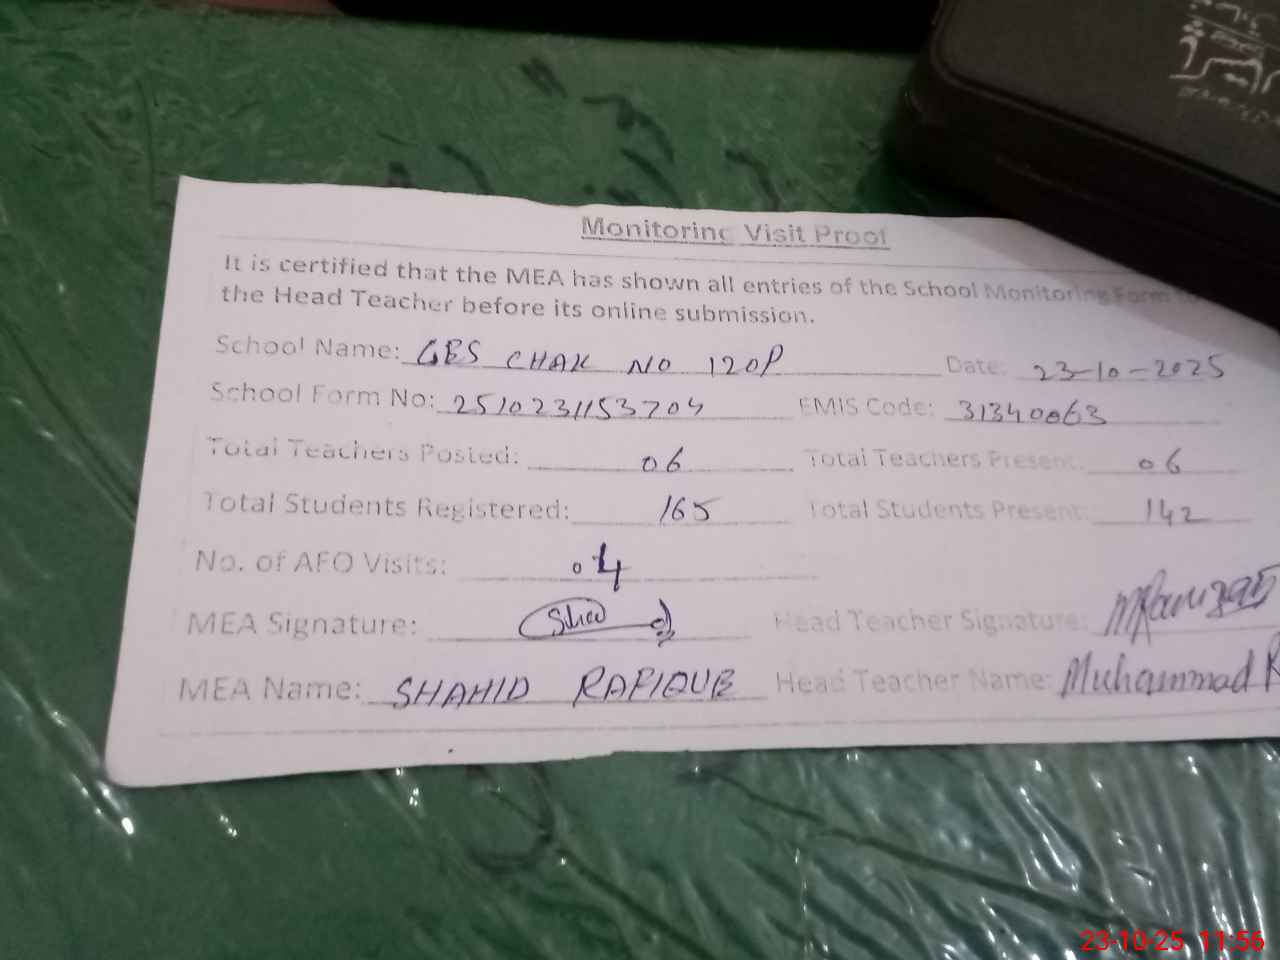 Monitoring Visit Proof
It is certified that the MEA has shown all entries of the School Monitoring Form
the Head Teacher before its online submission.
School Name: GES CHAK NO 120P Date: 23-10-2025
School Form No: 2510231153704 EMIS Code: 31340063
Total Teachers Posted: 06 Total Teachers Present: 06
Total Students Registered: 165 Total Students Present: 142
No. of AEO Visits: 04
MEA Signature: Head Teacher Signature:
MEA Name: SHAHID RAFIQUE Head Teacher Name: Muhammad R
23-10-25 11:56